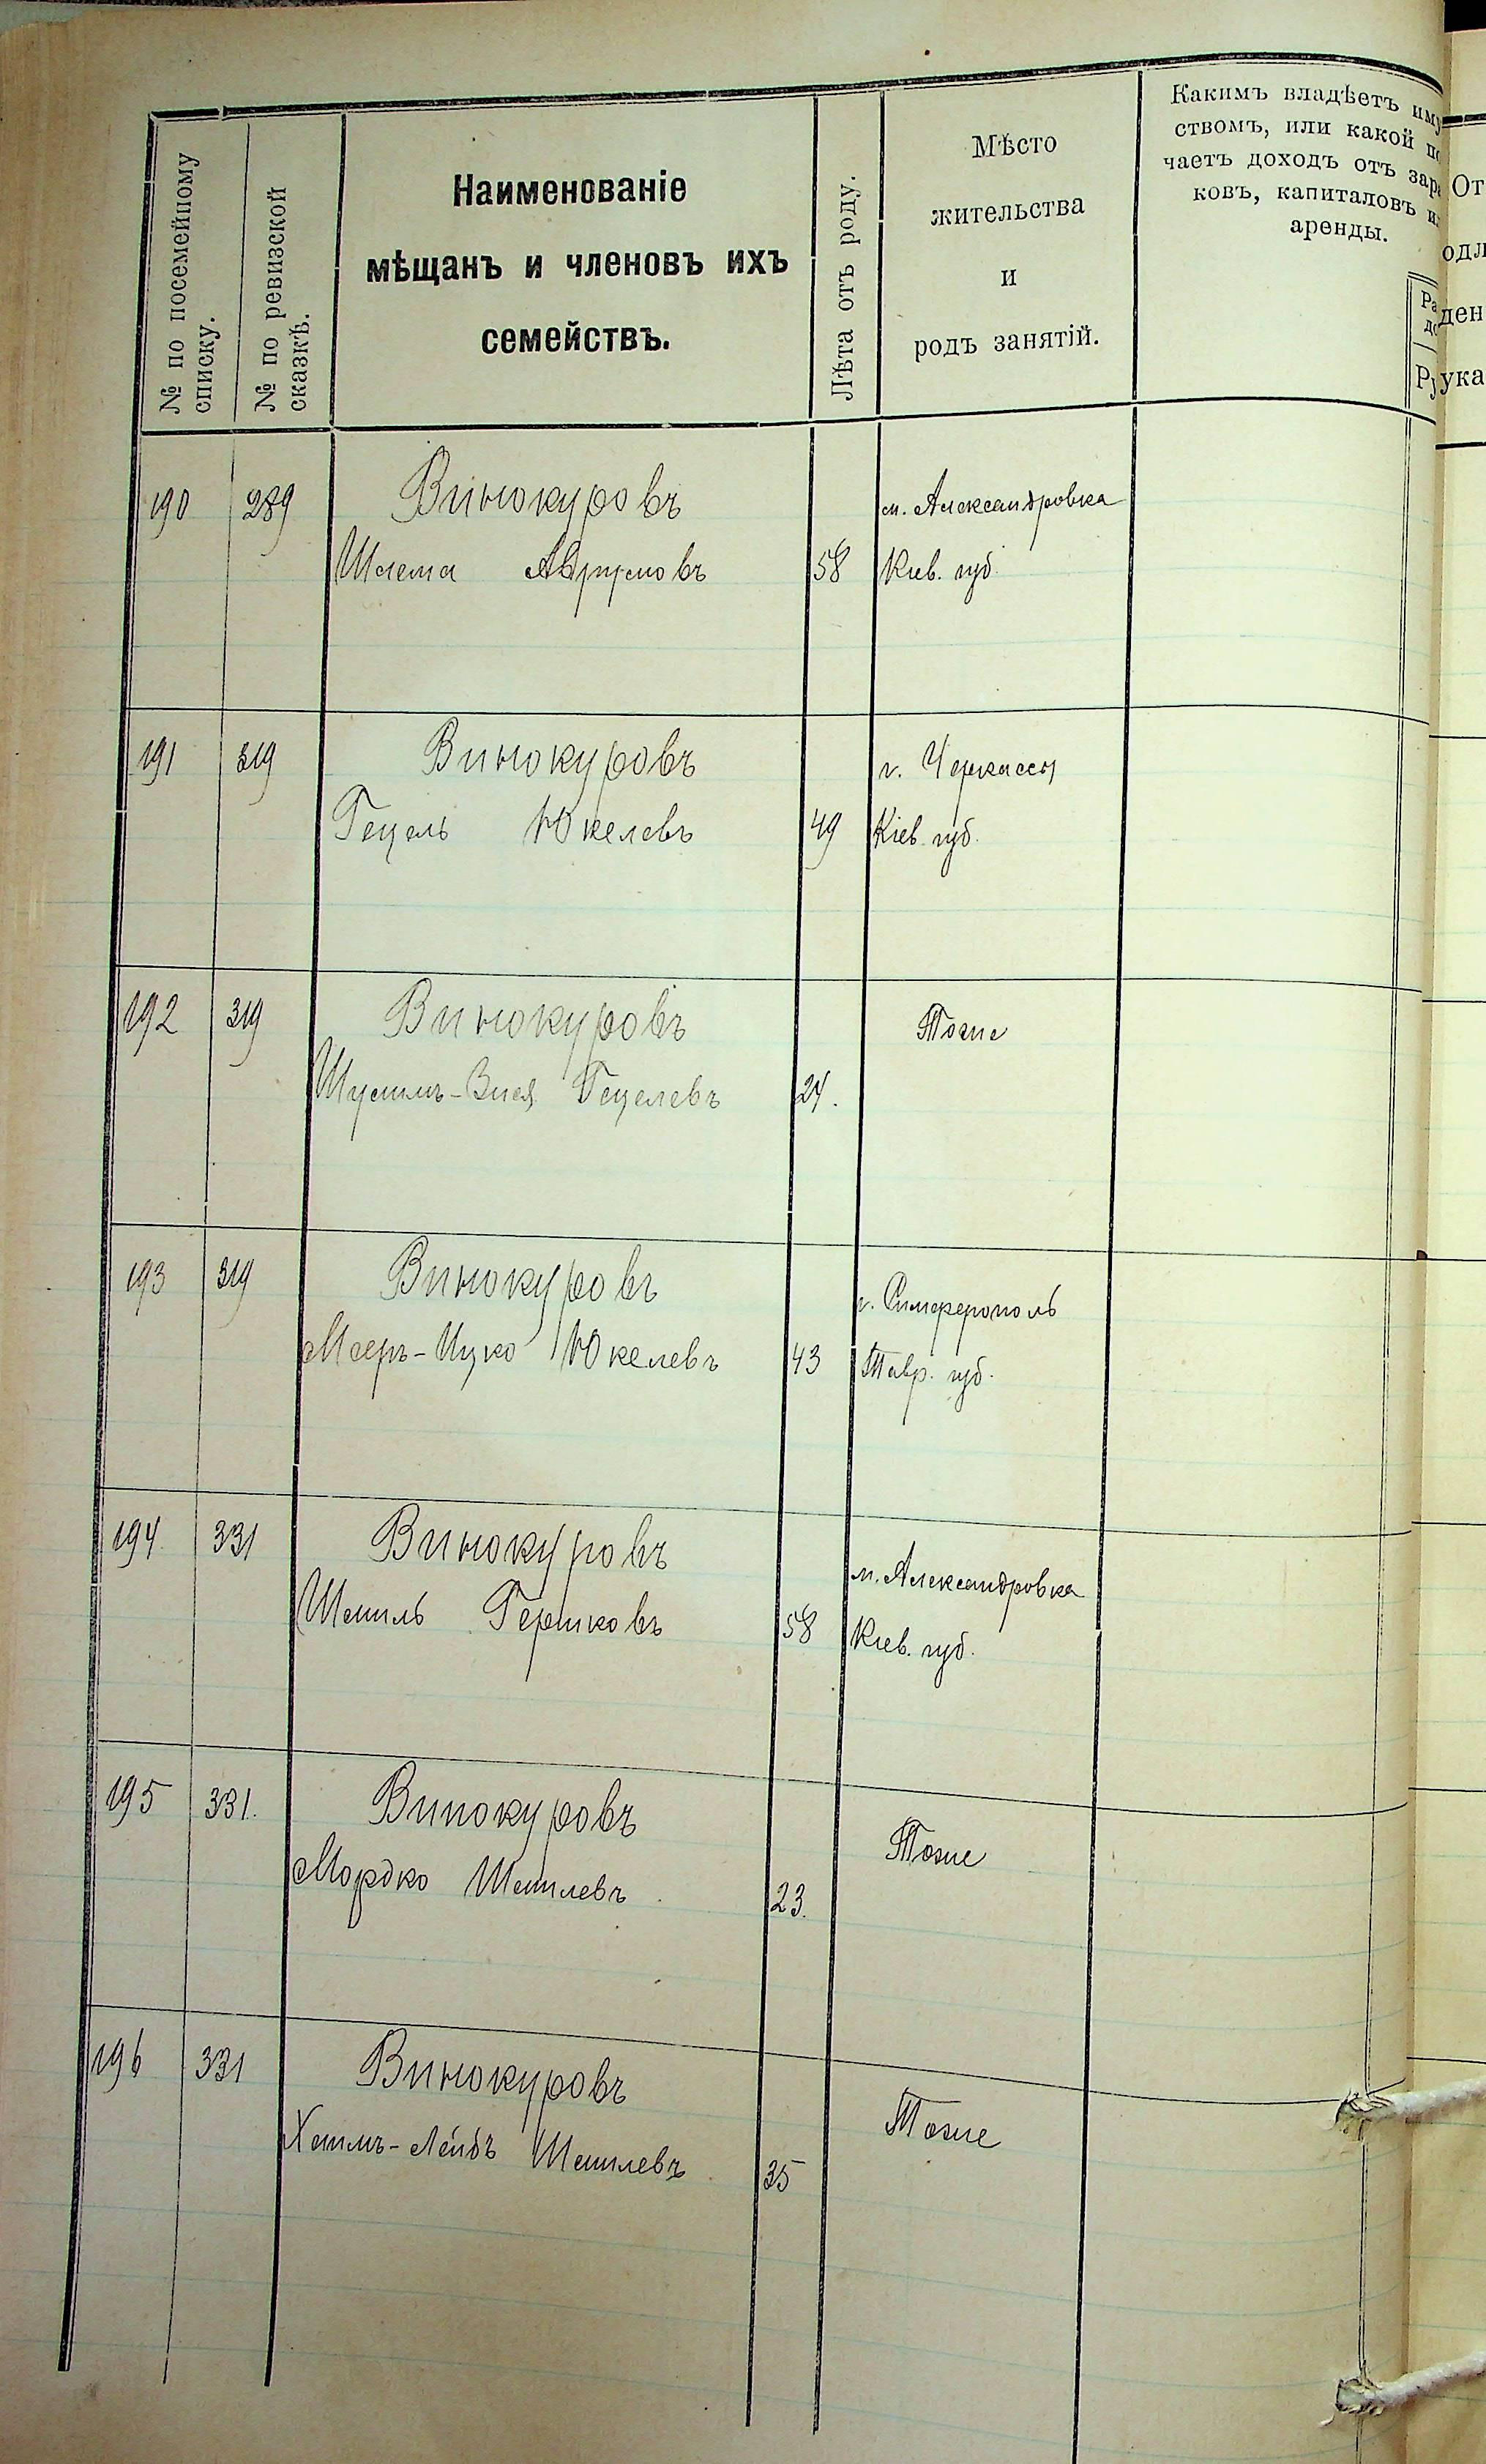 № по посемейному
списку.
№ по ревизской
сказкѣ.
Наименованіе
мѣщанъ и членовъ ихъ
семействъ.
Лѣта отъ роду.
Мѣсто
жительства
и
родъ занятій.
Какимъ владѣетъ иму
ствомъ, или какой по
чаетъ доходъ отъ зара
ковъ, капиталовъ и
аренды.
От
одл
ден
ука
190 289 Винокуровъ м. Александровка
Аврумовъ 58 Кіев. губ.
191 319 Винокуровъ г. Черкассы
Гецель Юкелевъ 49 Кіев. губ.
192 319 Винокуровъ Тоже
Гецелевъ 24.
193 319 Винокуровъ г. Симферополь
Мееръ-Ицко Юкелевъ 43 Тавр. губ.
194 331 Винокуровъ м. Александровка
Шмиль Гершковъ 58 Кіев. губ.
195 331. Винокуровъ Тоже
Мордко Шмилевъ 23.
196 331 Винокуровъ Тоже
Хаимъ-Лейбъ Шмилевъ 35